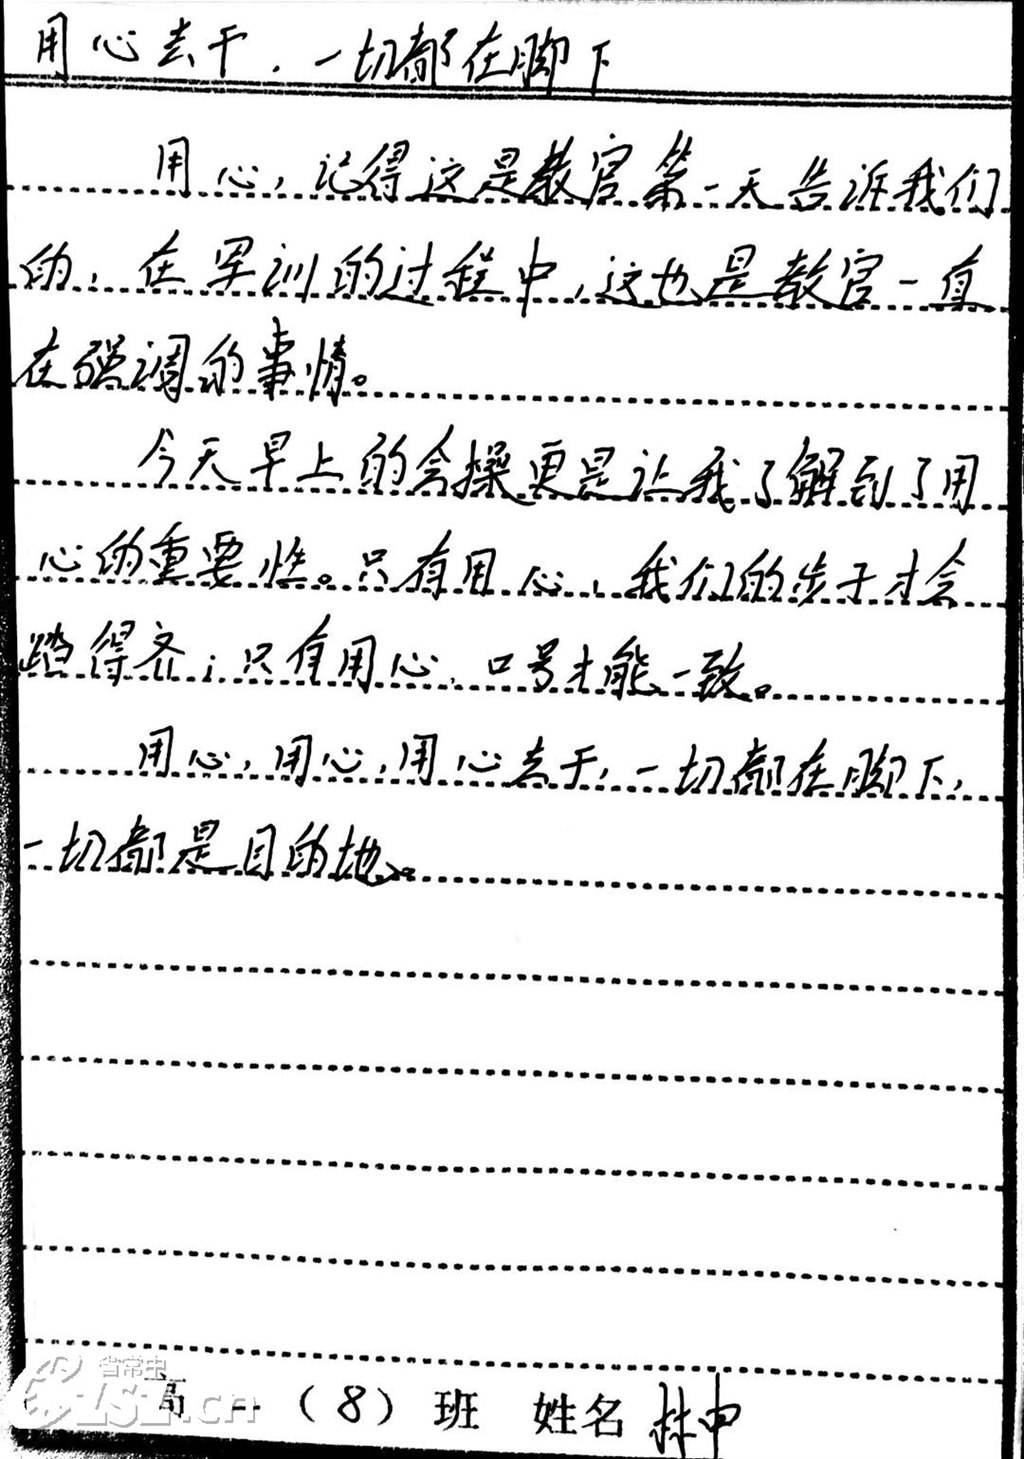 用心去干,一切都在脚下
用心,记得这是教官第一天告诉我们
的,在军训的过程中,这也是教官一直
在强调的事情。
今天早上的会操更是让我了解到了用
心的重要性。只有用心,我们的步子才会
踏得齐;只有用心,口号才能一致。
用心,用心,用心去干,一切都在脚下,
一切都是目的地。
省常中
高一(8)班 姓名 林申